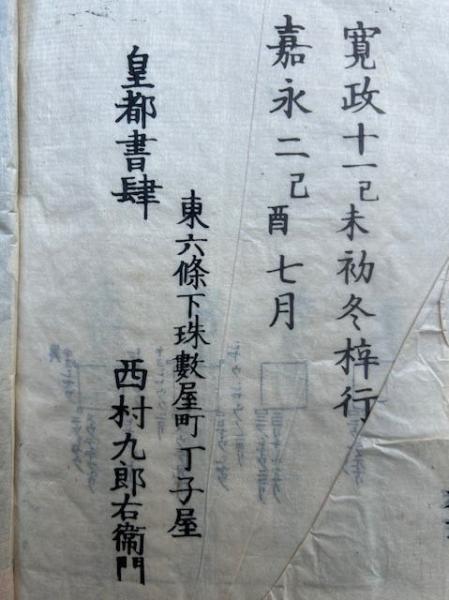 寛政十一己未初冬梓行
嘉永二己酉七月
東六條下珠數屋町丁子屋
皇都書肆
西村九郎右衞門